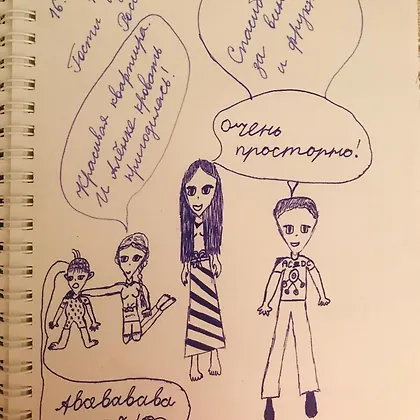 16.
Гости
Красивая квартира.
И Алёнке кровать
пригодилась!
Спасибо
за
и фрукты
Очень
просторно!
AC DC
Авававава